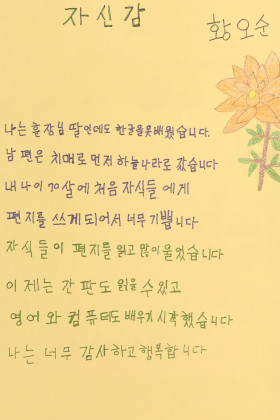 자신감
황오순
나는 훈장님 딸인데도 한글을 못배웠습니다.
남편은 치매로 먼저 하늘나라로 갔습니다
내나이 70살에 처음 자식들에게
편지를 쓰게되어서 너무 기쁩니다
자식들이 편지를 읽고 많이 울었습니다
이제는 간판도 읽을 수 있고
영어와 컴퓨터도 배우기 시작했습니다
나는 너무 감사하고 행복합니다